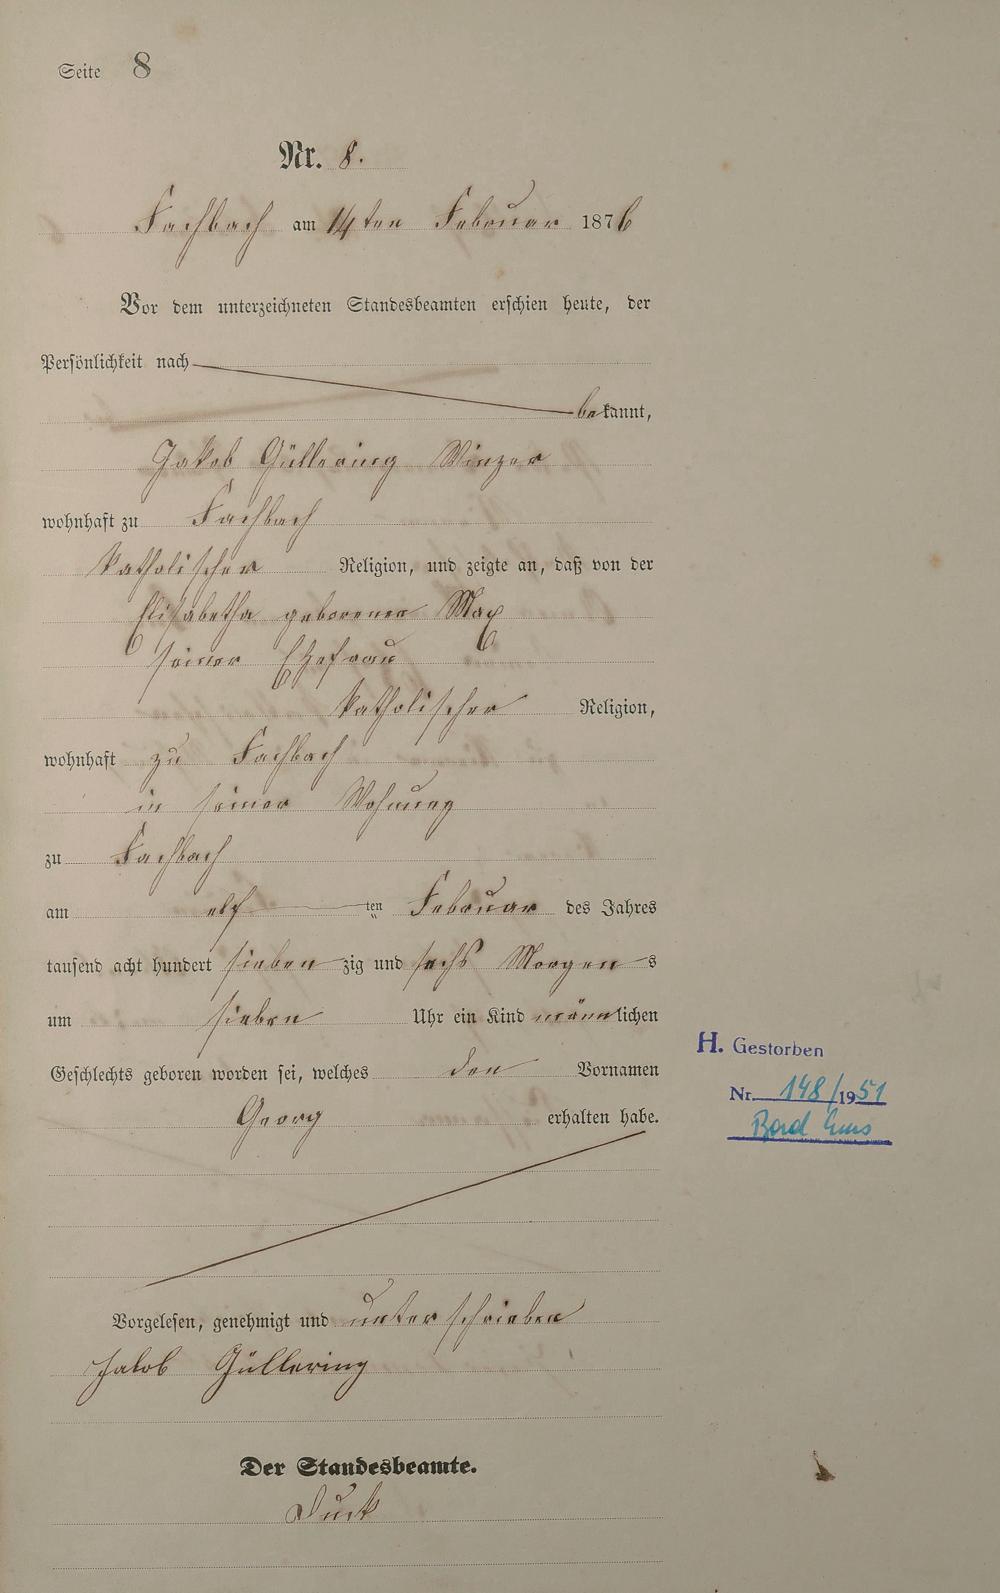 Seite 8
Nr. 8.
Fachbach am 14ten Februar 1876
Vor dem unterzeichneten Standesbeamten erschien heute, der
Persönlichkeit nach
bekannt,
Jakob Güllering Winzer
wohnhaft zu Fachbach
katholischer Religion, und zeigte an, daß von der
Elisabetha geborenen Max
seiner Ehefrau
katholischer Religion,
wohnhaft zu Fachbach
in seiner Wohnung
zu Fachbach
am elf ten Februar des Jahres
tausend acht hundert sieben zig und sechs Morgens
um sieben Uhr ein Kind männlichen
Geschlechts geboren worden sei, welches den Vornamen
Georg erhalten habe.
H. Gestorben
Nr. 148/1951
Bad Ems
Vorgelesen, genehmigt und unterschrieben
Jakob Güllering
Der Standesbeamte.